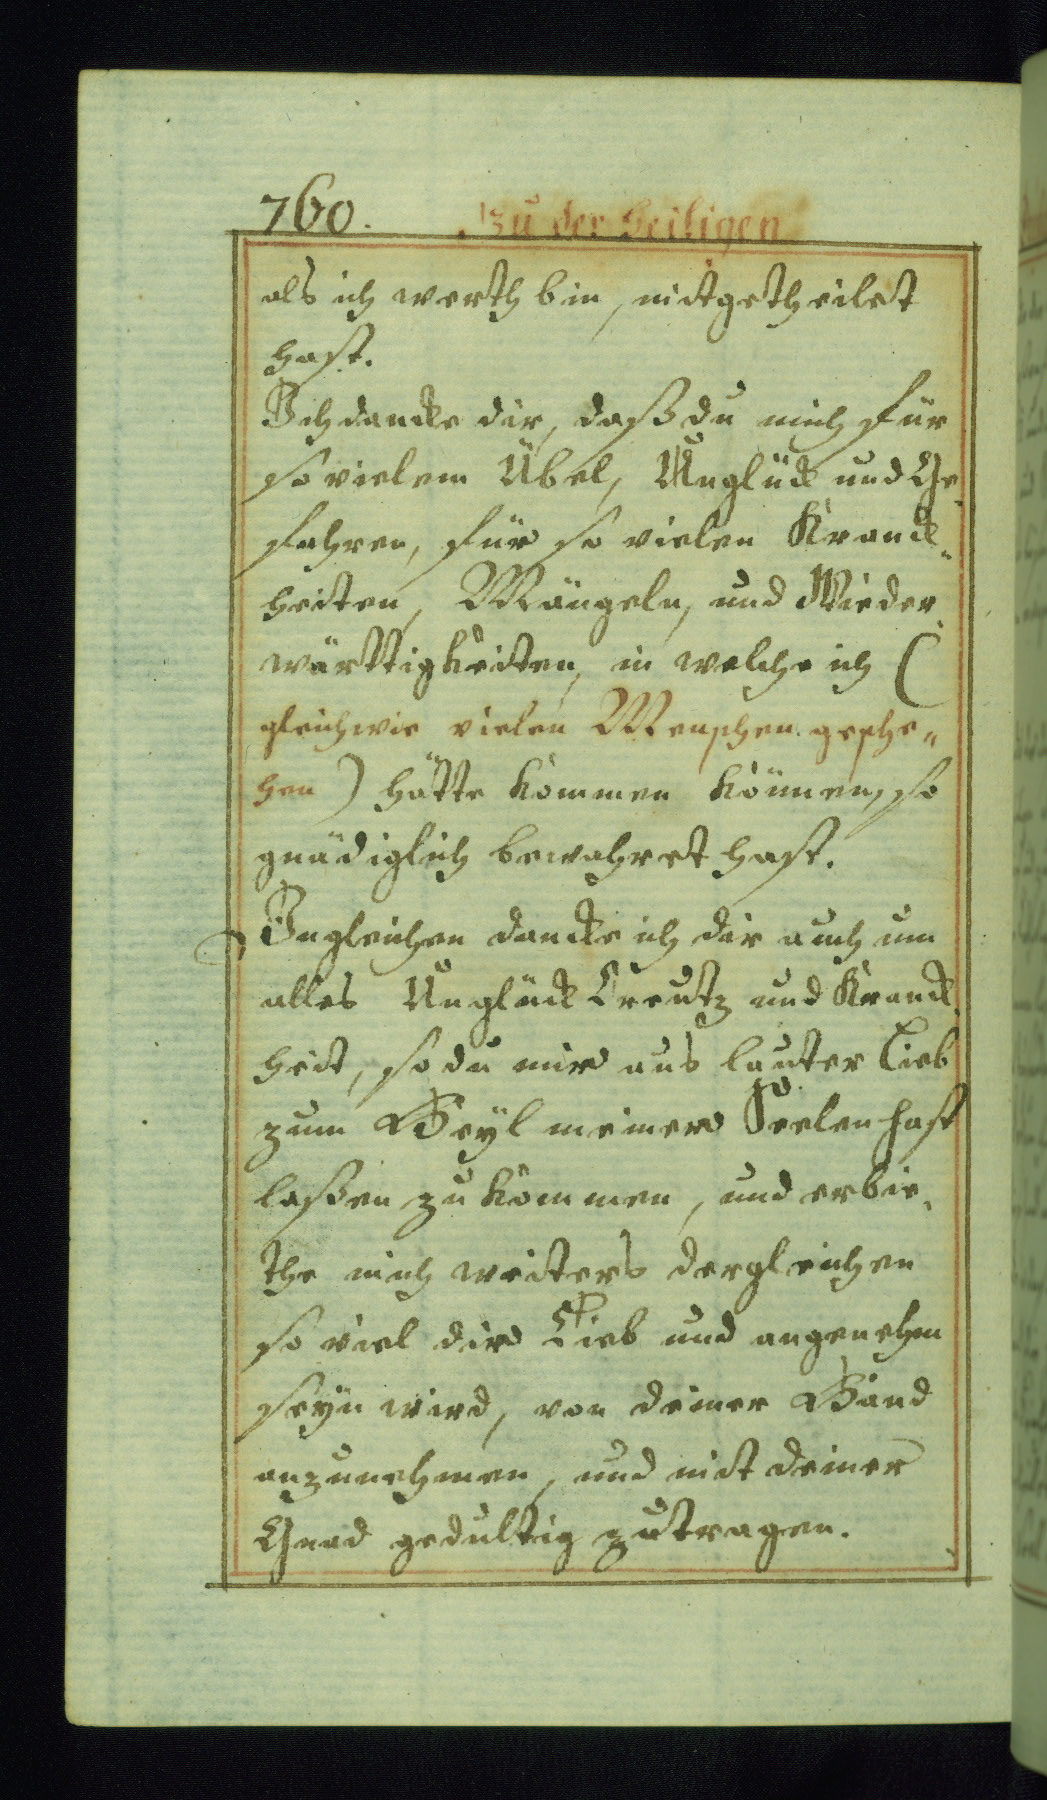 760. zu der heiligen
als ich werth bin, mitgetheilet
hast.
Ich dancke dir, daß du mich für
so vielem Übel, Unglück und Ge-
fahren, für so vielen Kranck-
heiten, Mängeln, und Wieder-
wärttigkeiten, in welche ich (
gleichwie vielen Menschen gesche-
hen) hätte kommen können, so
gnädiglich bewahret hast.
Ingleichen dancke ich dir auch um
alles Unglück Creutz und Kranck-
heit, so du mir aus lauter Lieb
zum Heyl meiner Seelen hast
laßen zu kommen, und erbie-
the mich weiters dergleichen
so viel dir Lieb und angenehm
seyn wird, von deiner Händ
anzunehmen, und mit deiner
Gnad gedultig zutragen.